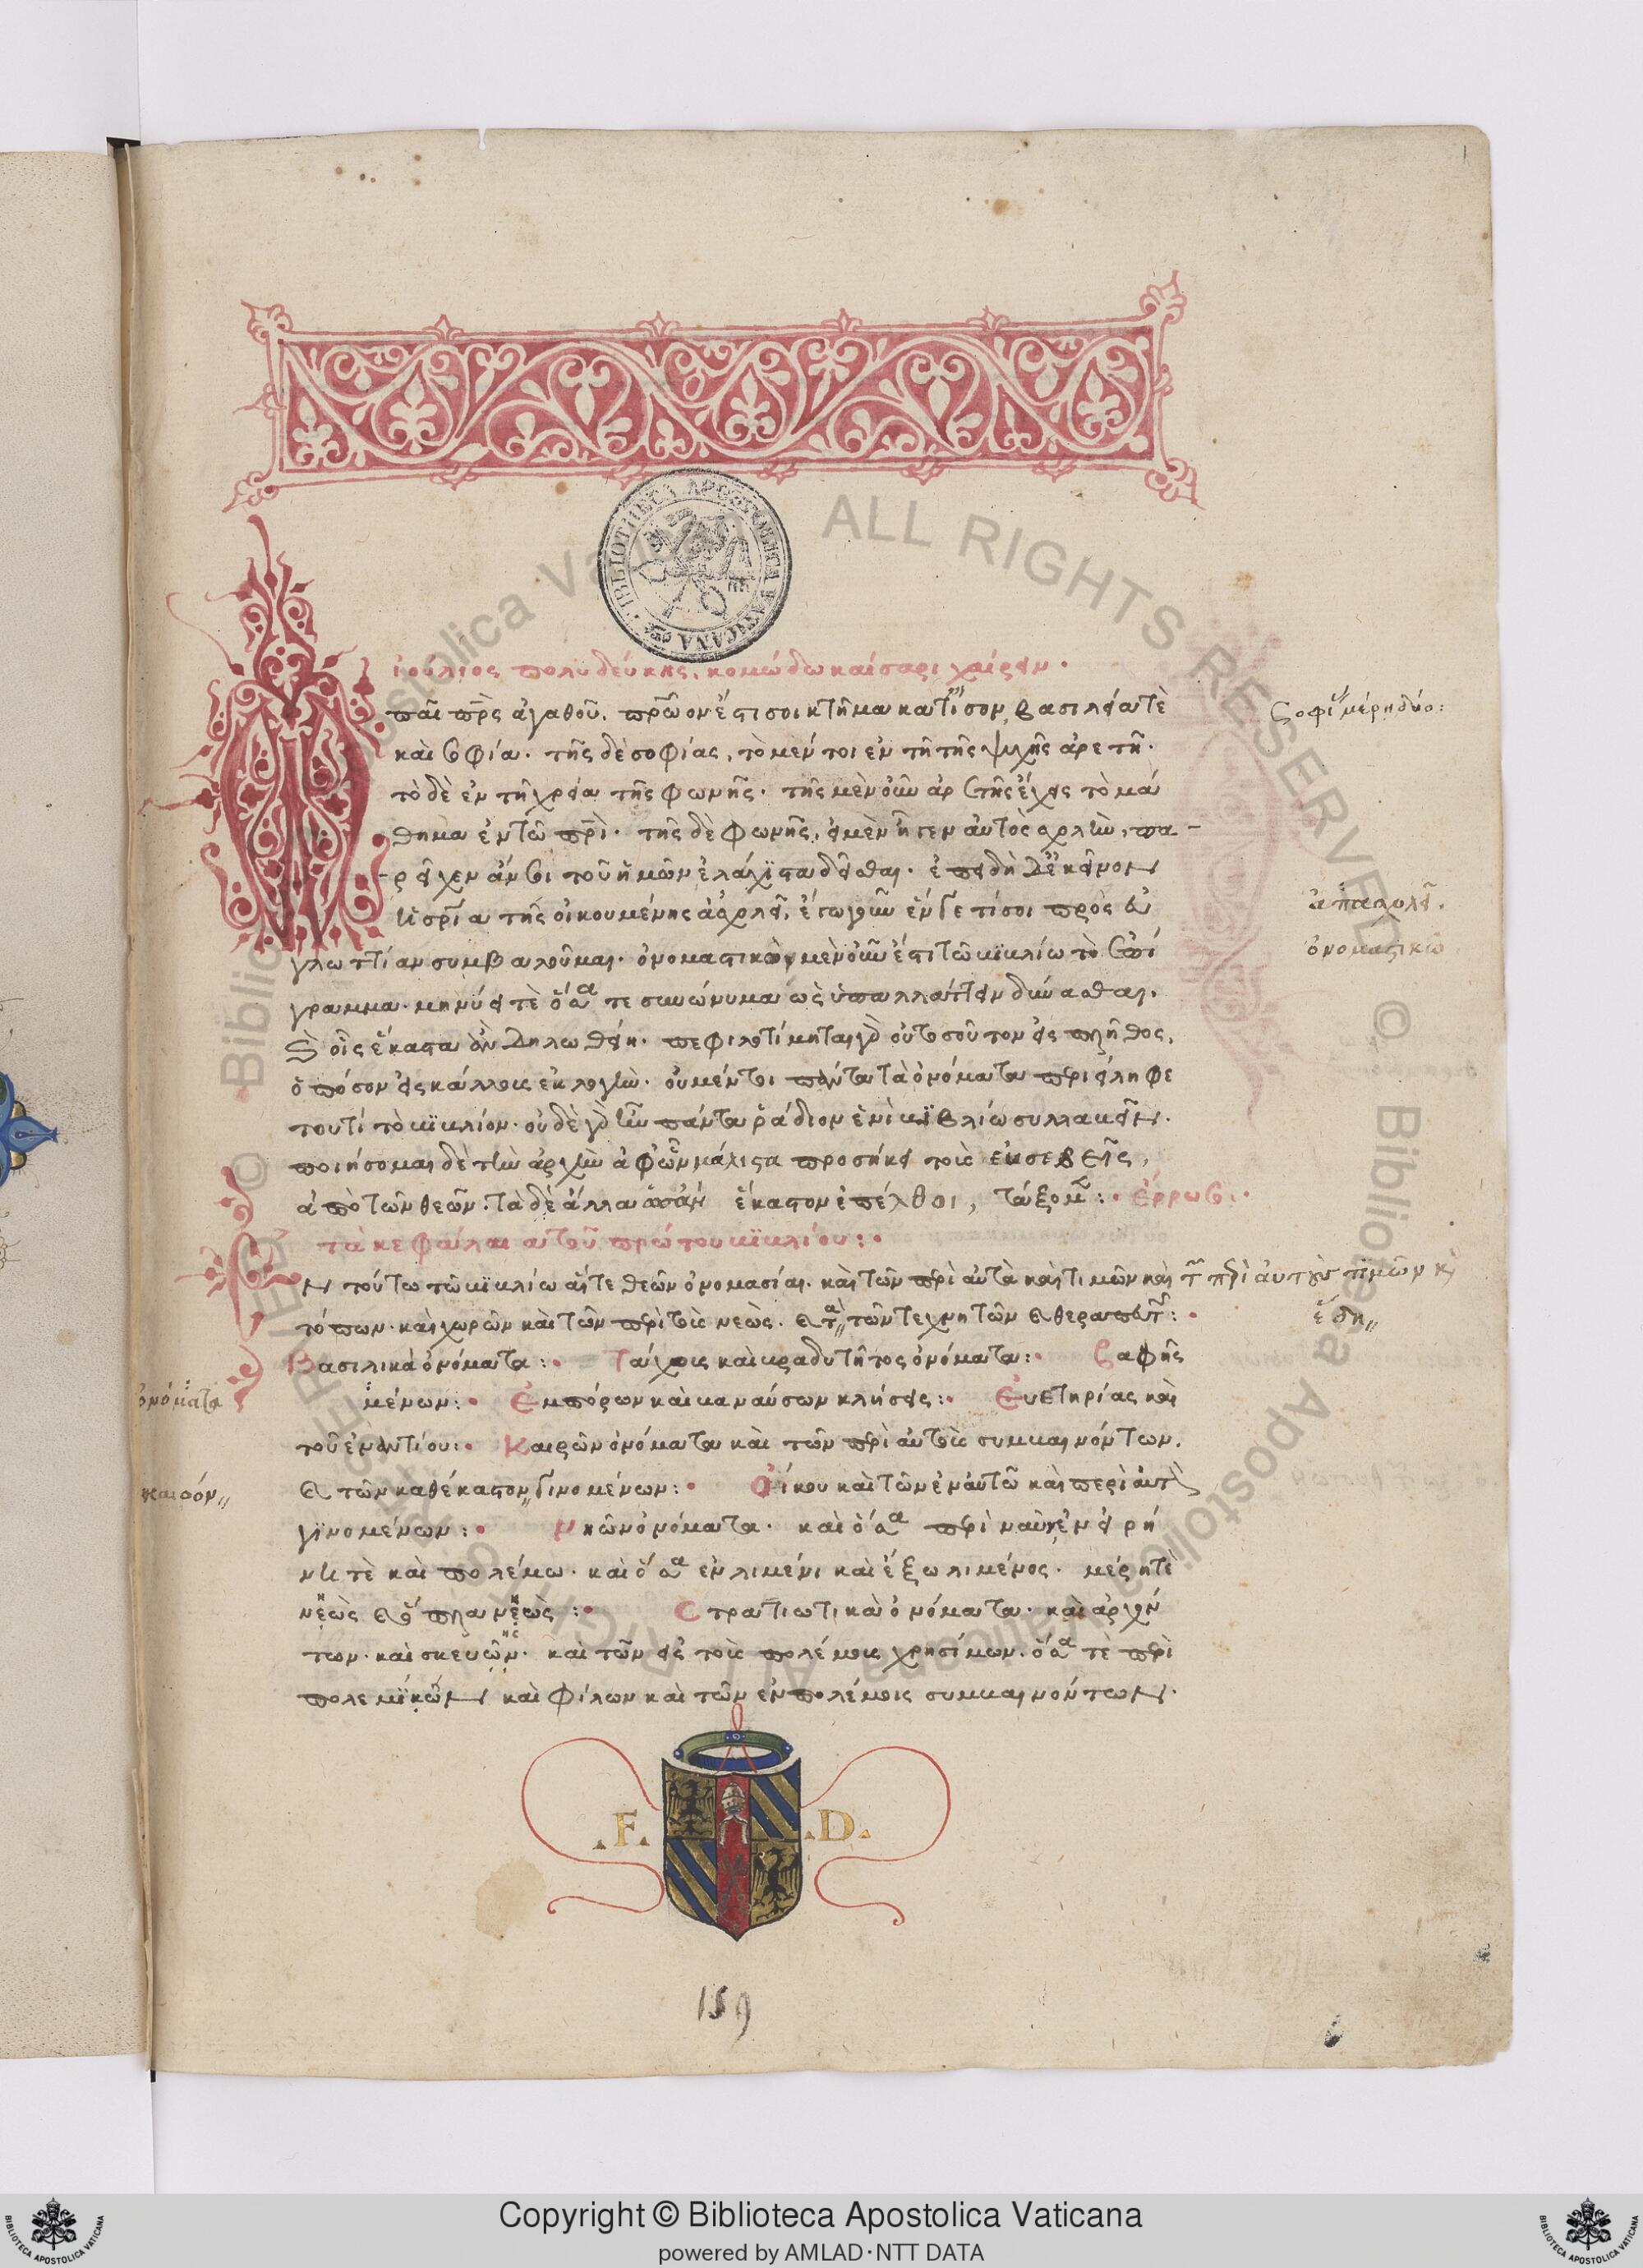 ἰούλιος πολυδεύκης, κομώδω καίσαρι χαίρειν.
παῖ πρς ἀγαθοῦ. πρῶον ἐστι σοι κτῆμα κατ ἴσον, βασιλεία τὲ
καὶ σοφία. τῆς δὲ σοφίας, τὸ μέν τοι ἐν τῆ τῆς ψυχῆς ἀρετῆ.
τὸ δὲ ἐν τῆ χρεία τῆς φωνῆς. τῆς μὲν οὖν ἀρετῆς ἔχεις τὸ μά
θημα ἐν τῶ πρὶ. τῆς δὲ φωνῆς, εἰ μὲν ἦγεν αὐτὸς σχολὴν, πα-
ρεῖχεν ἄν σοι τοῦ ἡμῶν ἐλάχιστα δεῖσθαι. ἐπειδὴ δὲ ἐκεῖνον
ἡ σρία τῆς οἰκουμένης ἀσχολεῖ, ἔγωγ οὖν ἕν γέ τί σοι πρὸς εὐ
γλωττίαν συμβαλοῦμαι. ὀνομαστικὸν μὲν οὖν ἐστι τῶ βιβλίω τὸ ἐπί
γραμμα. μηνύει τὲ ὅσα τε συνώνυμα ὡς ὑπαλλάττειν δύνασθαι.
καὶ οἷς ἕκαστα ἂν δηλωθείη. πεφιλοτίμηται γὰρ οὐ τοσοῦτον εἰς πλῆθος,
ὁπόσον εἰς κάλλους ἐκλογὴν. οὐ μέντοι πάντα τὰ ὀνόματα πριείληφε
τουτὶ τὸ βιβλίον. οὐδὲ γὰρ ἦν πάντα ῥάδιον ἑνὶ βιβλίω συλλαβεῖν.
ποιήσομαι δὲ τὴν ἀρχὴν ἀφ ὧν μάλιστα προσήκει τοὺς εὐσεβεῖς,
ἀπὸ τῶν θεῶν. τὰ δὲ ἄλλα ὡς ἂν ἕκαστον ἐπέλθοι, τάξομεν: ἔρρωσο.
τὰ κεφάλαια τοῦ πρώτου βιβλίου:
ν τούτω τῶ βιβλίω αἵ τε θεῶν ὀνομασίαι. καὶ τῶν πρὶ αὐτὰ καὶ τιμῶν καὶ
τόπων. καὶ χωρῶν καὶ τῶν πρὶ τοὺς νεὼς. καὶ τὰ τῶν τεχνητῶν καὶ θεραπευτ:
Βασιλικὰ ὀνόματα: Τάχους καὶ βραδυτῆτος ὀνόματα: βαφῆς
μένων: Ἐμπόρων καὶ βαναύσων κλήσεις: Εὐετηρίας καὶ
τοῦ ἐναντίου: Καιρῶν ὀνόματα καὶ τῶν πρὶ αὐτοὺς συμβαινόντων.
καὶ τῶν καθέκαστον γινομένων: Οἴκου καὶ τῶν ἐν αὐτῶ καὶ περὶ αὐτὸν
γινομένων: νεῶν ὀνόματα. καὶ ὅσα πρὶ ναῦν ἐν εἰρή
νη τὲ καὶ πολέμω. καὶ ὅσα ἐν λιμένι καὶ ἔξω λιμένος. μέρη τὲ
νεὼς καὶ ὅπλα νεὼς: Στρατιωτικὰ ὀνόματα. καὶ ἀρχόν
των. καὶ σκευῶν. καὶ τῶν εἰς τοὺς πολέμους χρησίμων. ὅσα τὲ πρὶ
πολεμικῶν καὶ φίλων καὶ τῶν ἐν πολέμοις συμβαινόντων.
σοφί μέρη δύο:
ὀνομαστικῶ
ὀνόματα
.F. .D.
159
1
BIBLIOTHECA APOSTOLICA VATICANA
© Biblioteca Apostolica Vaticana ALL RIGHTS RESERVED
Copyright © Biblioteca Apostolica Vaticana
powered by AMLAD·NTT DATA